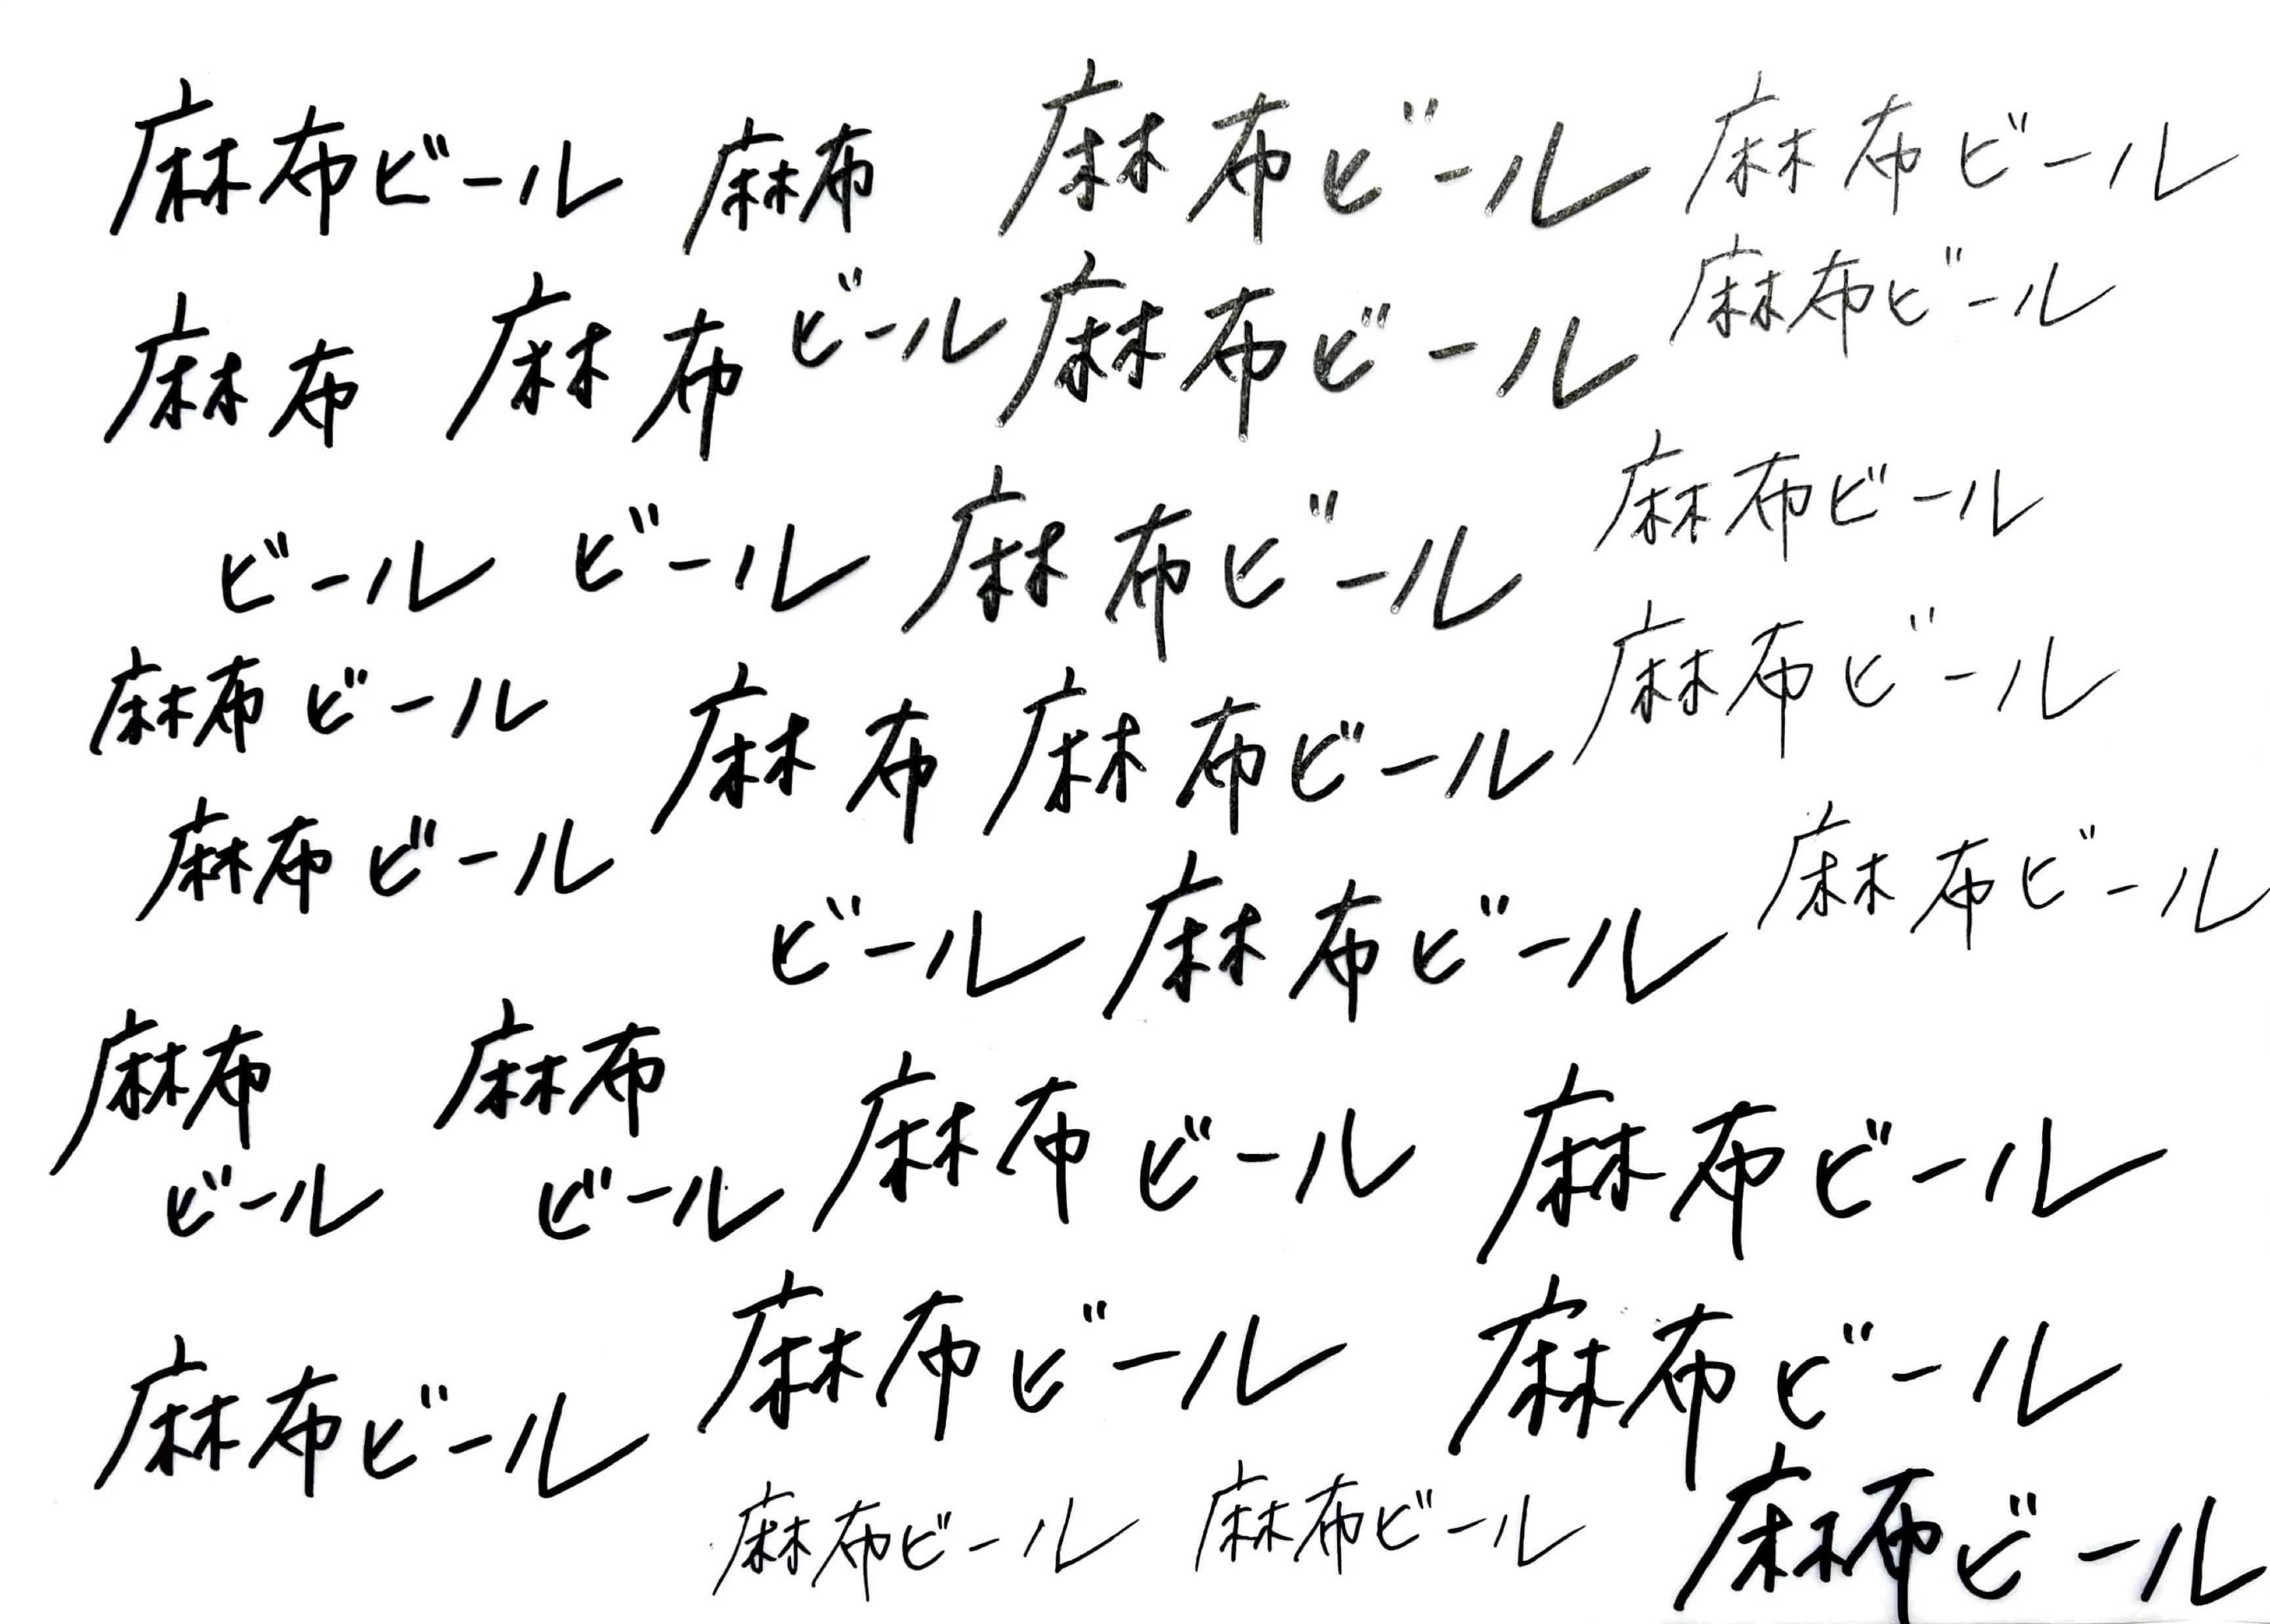 麻布ビール 麻布 麻布ビール 麻布ビール
麻布ビール
麻布 麻布 ビール 麻布ビール
麻布ビール
ビール ビール 麻布ビール
麻布ビール
麻布ビール 麻布 麻布ビール
麻布ビール
麻布ビール
ビール 麻布ビール
麻布 麻布
ビール ビール
麻布ビール 麻布ビール
麻布ビール 麻布ビール
麻布ビール
麻布ビール 麻布ビール 麻布ビール